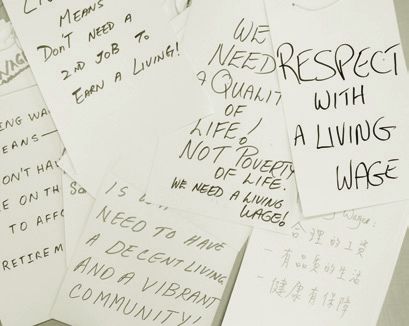 MEANS
DON'T NEED A
2ND JOB TO
EARN A LIVING!
WE
NEED
A QUALIT
OF
LIFE!
NOT POVERTY
OF LIFE.
WE NEED A LIVING
WAGE!
RESPECT
WITH
A LIVING
WAGE
ING WA
EANS—
ON'T HA
E ON TH
TO AFFO
RETIREM
IS
NEED TO HAVE
A DECENT LIVING
AND A VIBRANT
COMMUNITY!
Wage:
合理的工资
-有品质的生活
-健康有保障